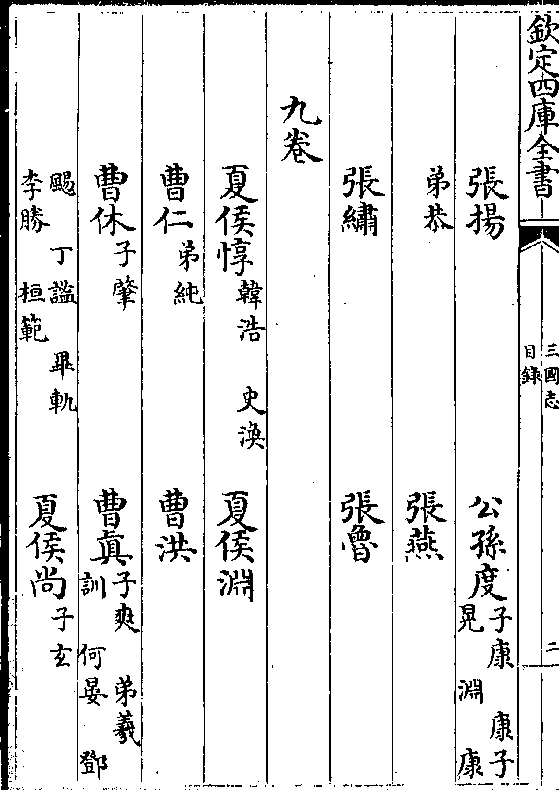 欽定四庫全書
三國志
目錄
二
張揚 公孫度 子康 康子 晃 淵 康
弟恭 張燕
張繡 張魯
九卷
夏侯惇 韓浩 史渙 夏侯淵
曹仁 弟純 曹洪
曹休 子肇 曹真 子爽 弟羲 訓 何晏 鄧
颺 丁謐 畢軌 李勝 桓範 夏侯尚 子玄